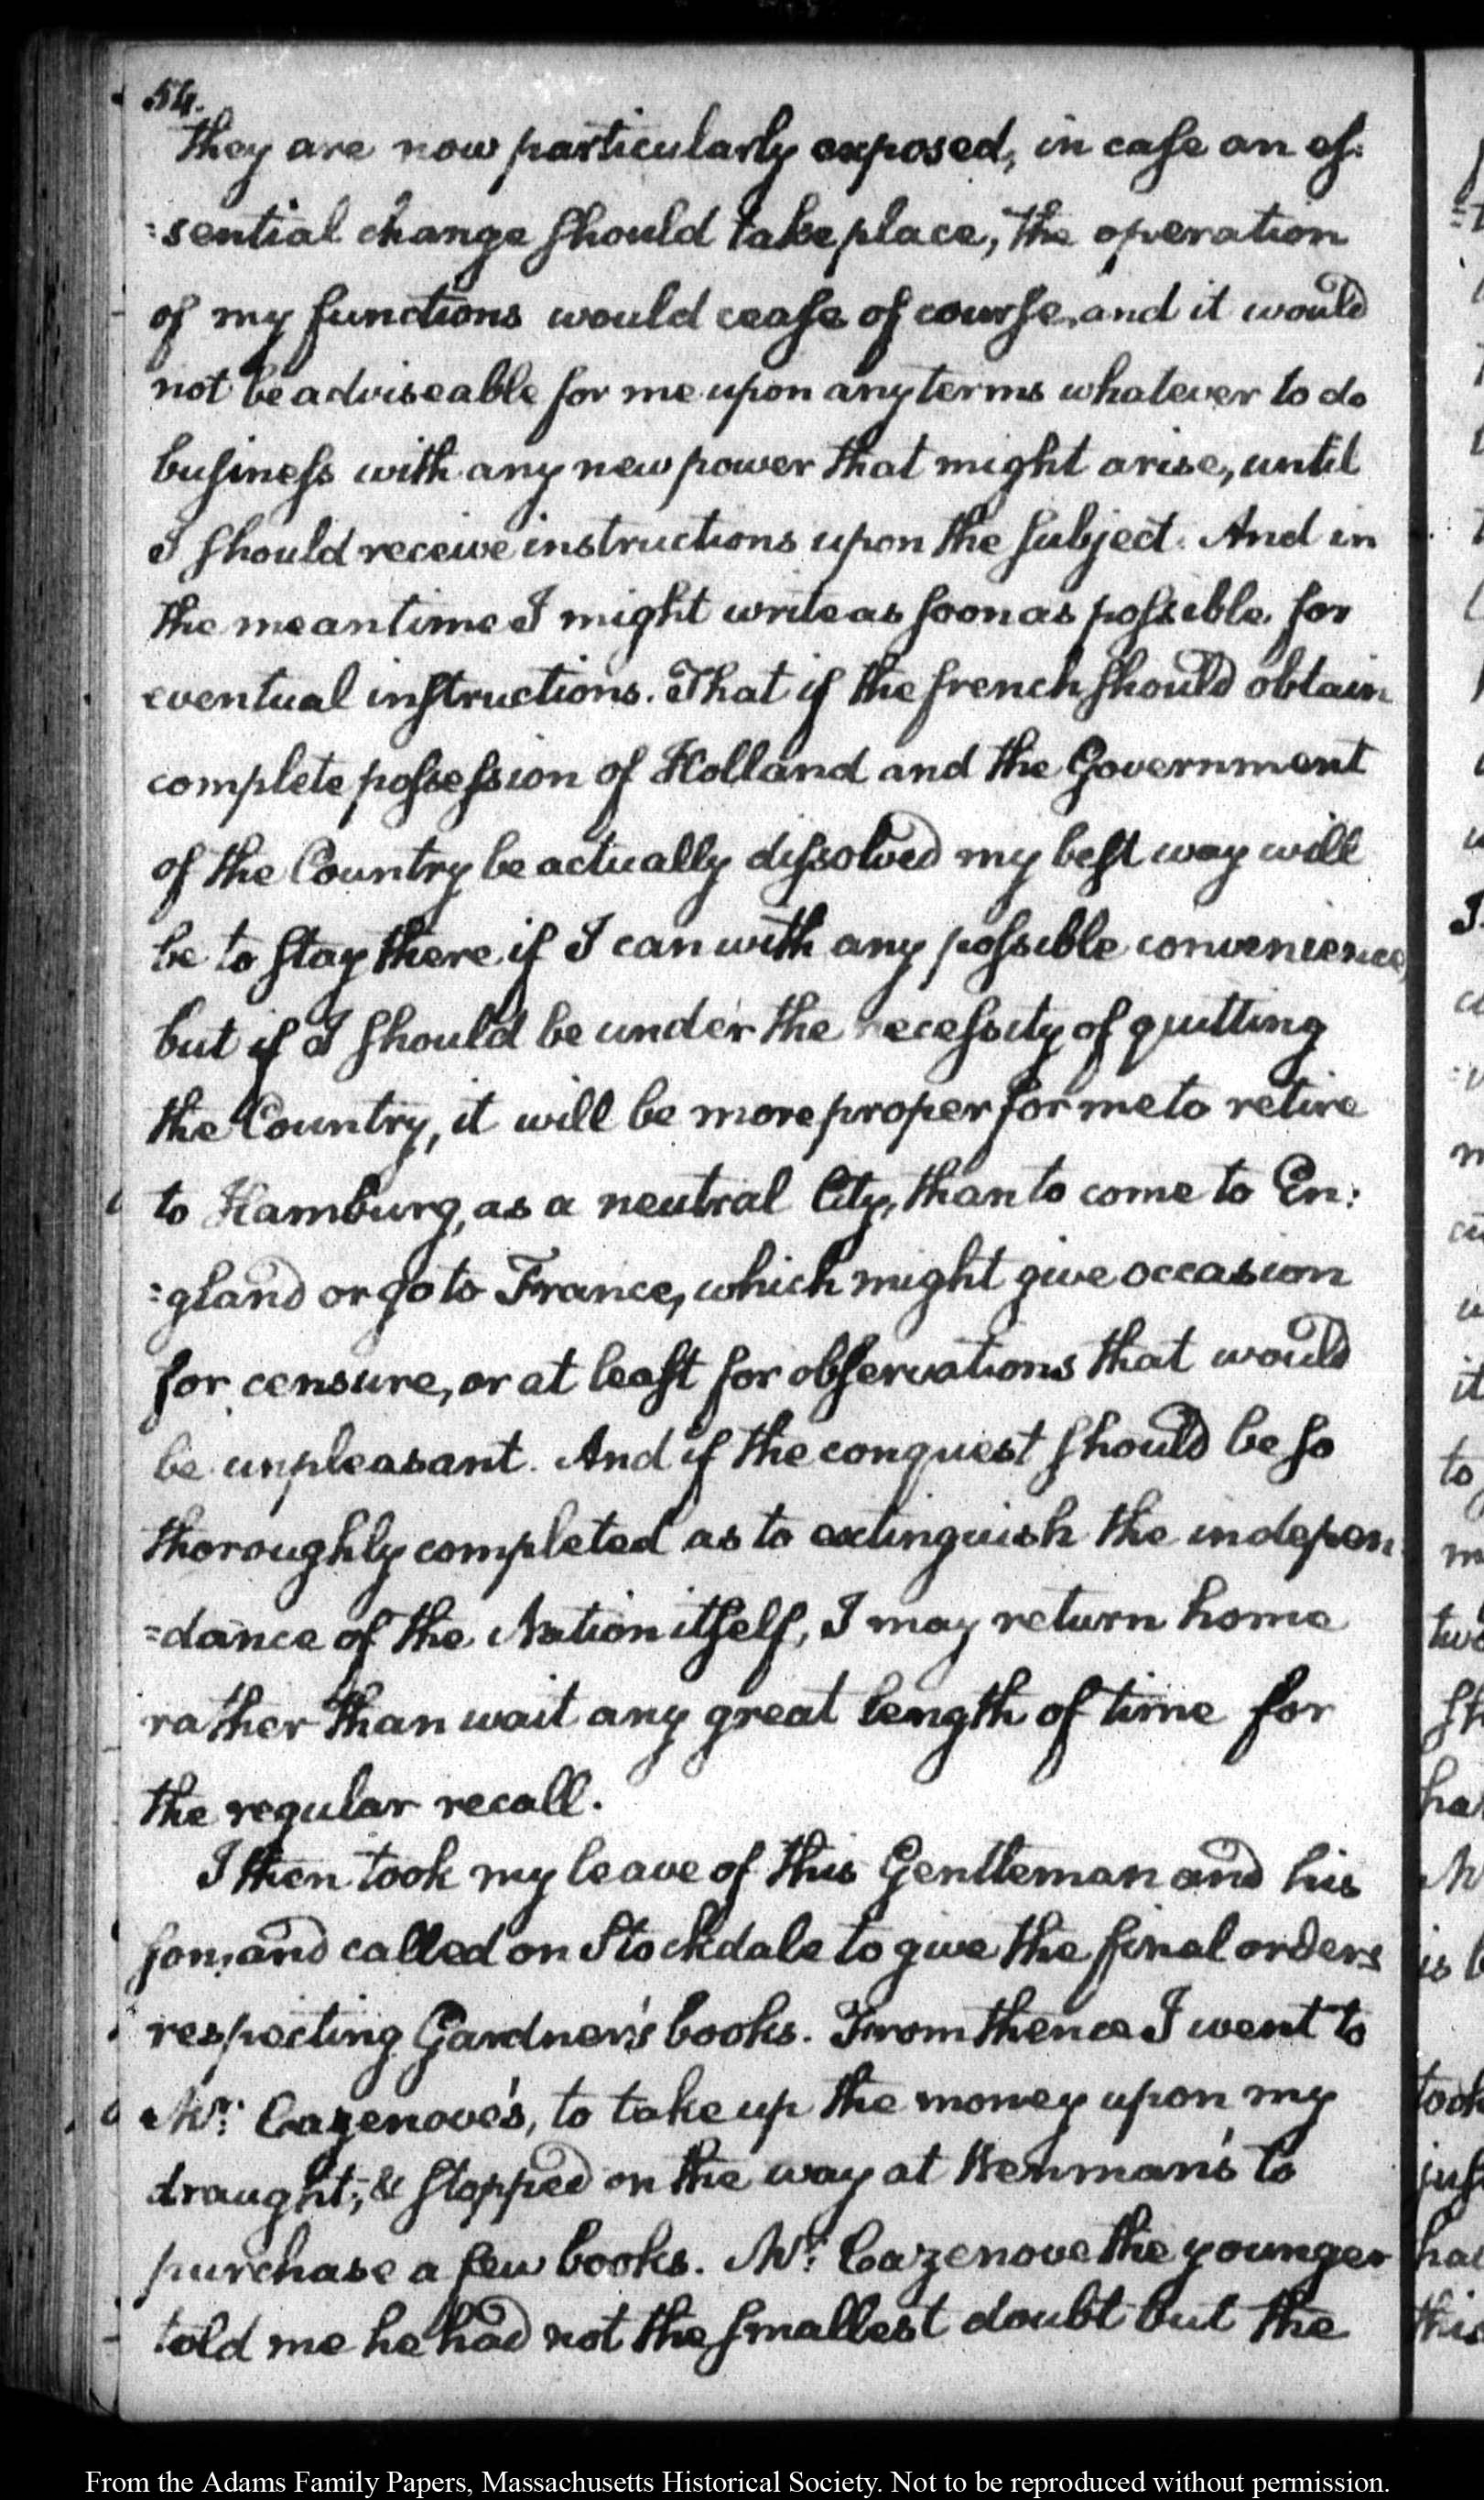 54.
they are now particularly exposed, in case an es:
:sential change should take place, the operation
of my functions would cease of course, and it would
not be adviseable for me upon any terms whatever to do
business with any new power that might arise, until
I should receive instructions upon the subject. And in
the mean time I might write as soon as possible for
eventual instructions. That if the french should obtain
complete possession of Holland and the Government
of the Country be actually dissolved my best way will
be to stay there if I can with any possible convenience,
but if I should be under the necessity of quitting
the Country, it will be more proper for me to retire
to Hamburg, as a neutral City, than to come to En:
:gland or go to France, which might give occasion
for censure, or at least for observations that would
be unpleasant. And if the conquest should be so
thoroughly completed as to extinguish the indepen
=dance of the Nation itself, I may return home
rather than wait any great length of time for
the regular recall.
I then took my leave of this Gentleman and his
son, and called on Stockdale to give the final orders
respecting Gardner's books. From thence I went to
Mr: Cazenove's, to take up the money upon my
draught, & stopped on the way at Kenman's to
purchase a few books. Mr: Cazenove the younger
told me he had not the smallest doubt but the
From the Adams Family Papers, Massachusetts Historical Society. Not to be reproduced without permission.